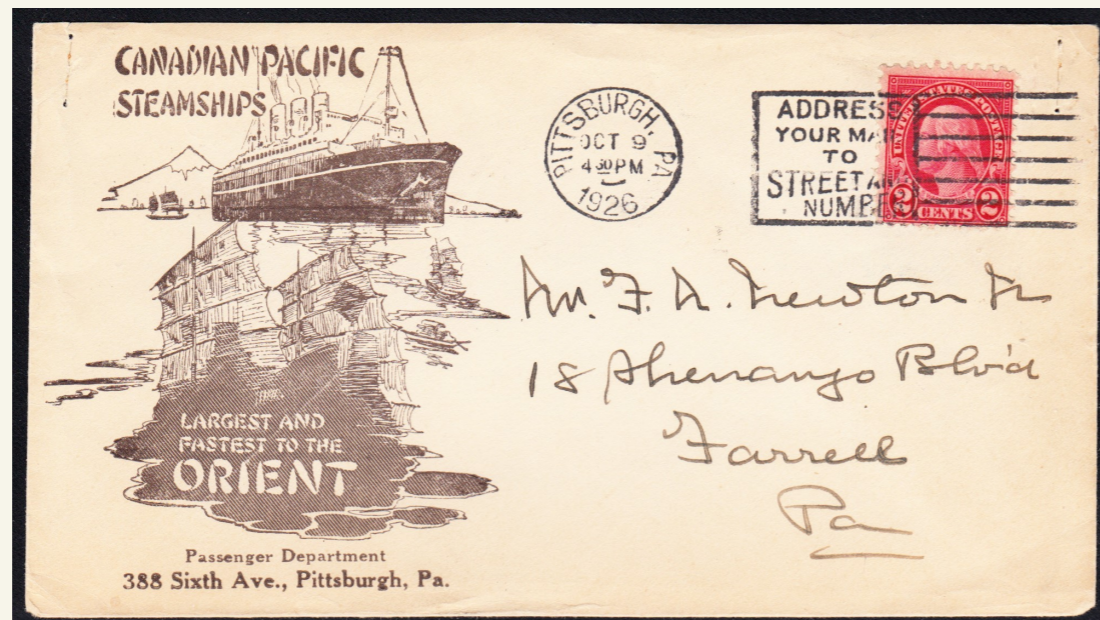 CANADIAN PACIFIC
STEAMSHIPS
LARGEST AND
FASTEST TO THE
ORIENT
Passenger Department
388 Sixth Ave., Pittsburgh, Pa.
PITTSBURGH, PA
OCT 9
4 30 PM
1926
ADDRESS
YOUR MAIL
TO
STREET AND
NUMBER
UNITED STATES POSTAGE
2 CENTS 2
Mr. F. A. Newton Jr
18 Shenango Blv'd
Farrell
Pa